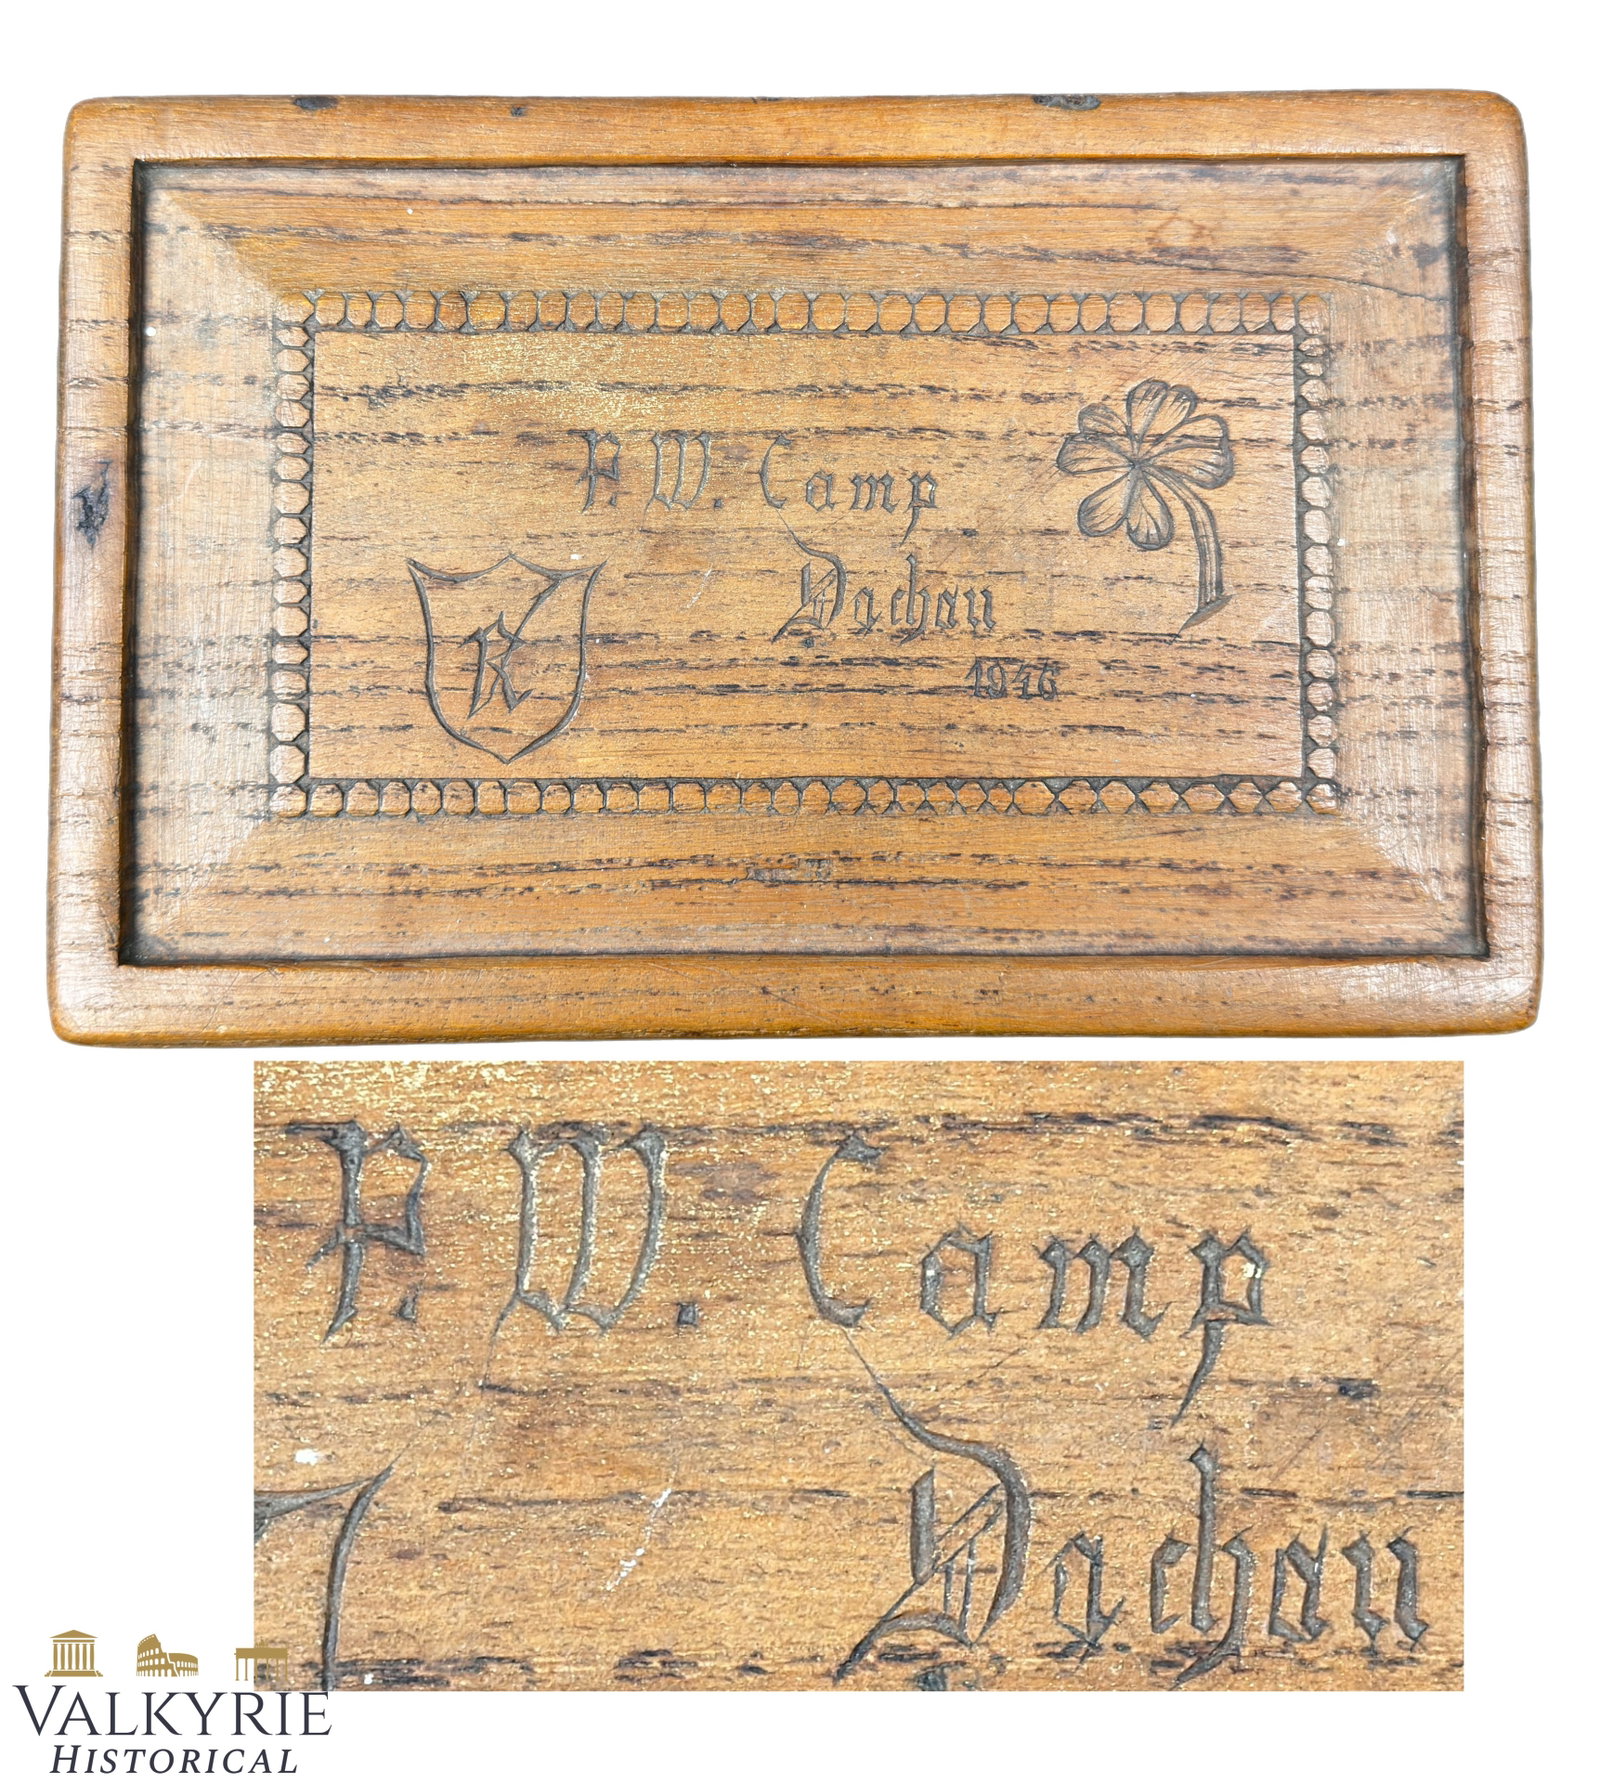 P. W. Camp
Dachau
1946
R
P. W. Camp
Dachau
VALKYRIE
HISTORICAL